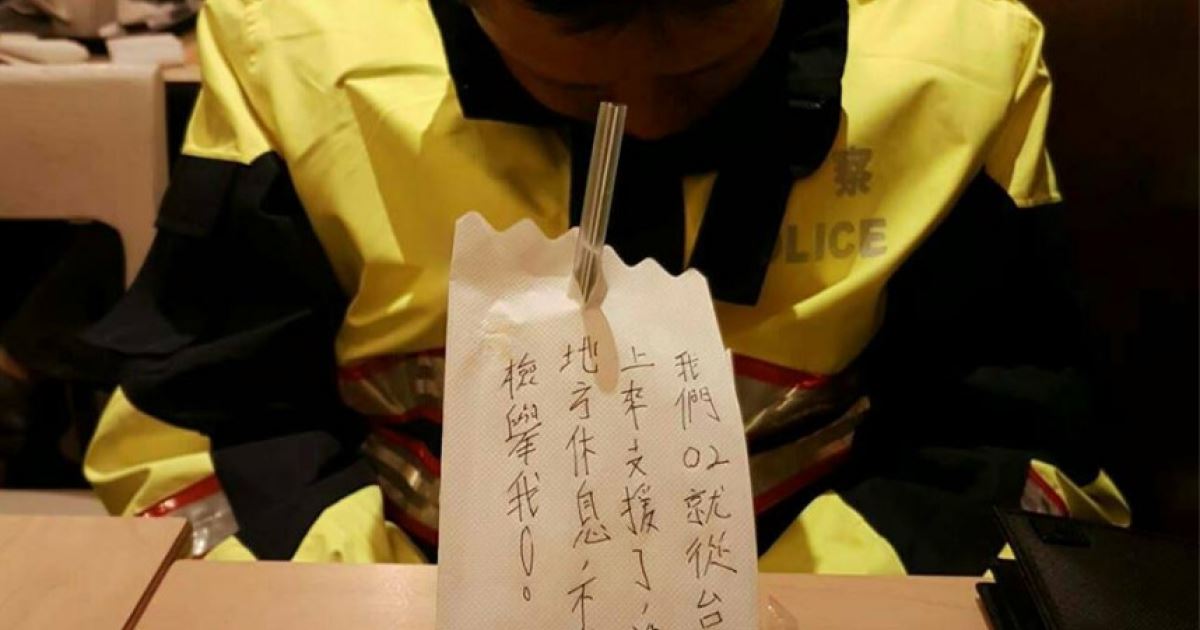 察
OLICE
我們02就從台
上來支援了,
地方休息,不
檢舉我!